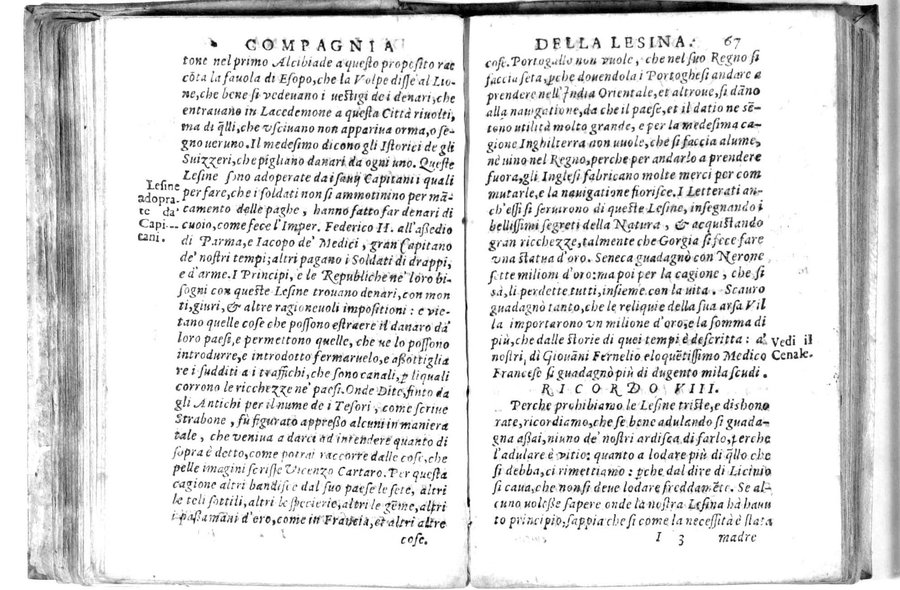 COMPAGNIA
tone nel primo Alcibiade a questo proposito rac
cõta la fauola di Esopo, che la Volpe disse al Lio-
ne, che bene si vedeuano i uestigi de i denari, che
entrauano in Lacedemone a questa Città riuolti,
ma di q̃lli, che vsciuano non appariua orma, o se-
gno ueruno. Il medesimo dicono gli Istorici de gli
Suizzeri, che pigliano danari da ogni uno. Queste
Lesine sono adoperate da i sauij Capitani i quali
per fare, che i soldati non si ammotinino per mã-
camento delle paghe, hanno fatto far denari di
cuoio, come fece l'Imper. Federico II. all'assedio
di Parma, e Iacopo de' Medici, gran Capitano
de' nostri tempi; altri pagano i Soldati di drappi,
e d'arme. I Principi, e le Republiche ne' loro bi-
sogni con queste Lesine trouano denari, con mon
ti, giuri, & altre ragioneuoli impositioni: e vie-
tano quelle cose che possono estraere il danaro da'
loro paesi, e permettono quelle, che ue lo possono
introdurre, e introdotto fermaruelo, e assottiglia
re i sudditi a i traffichi, che sono canali, ꝑ li quali
corrono le ricchezze ne' paesi. Onde Dite, finto da
gli Antichi per il nume de i Tesori, come scriue
Strabone, fù figurato appresso alcuni in maniera
tale, che veniua a darci ad intendere quanto di
sopra è detto, come potrai raccorre dalle cose, che
pelle imagini scrisse Vicenzo Cartaro. Per questa
cagione altri bandisce dal suo paese le sete, altri
le teli sottili, altri le specierie, altri le gẽme, altri
i passamani d'oro, come in Francia, et altri altre
cose.
Lesine
adopra-
te da
Capi-
tani.
DELLA LESINA. 67
cose. Portogallo non vuole, che nel suo Regno si
faccia seta, ꝑche douendola i Portoghesi andare a
prendere nell'India Orientale, et altroue, si dãno
alla nauigatione, da che il paese, et il datio ne sẽ-
tono utilità molto grande, e per la medesima ca-
gione Inghilterra non uuole, che si faccia alume,
nè uino nel Regno, perche per andarlo a prendere
fuora, gli Inglesi fabricano molte merci per com
mutarle, e la nauigatione fiorisce. I Letterati an-
ch'essi si seruirono di queste Lesine, insegnando i
bellissimi segreti della Natura, & acquistando
gran ricchezze, talmente che Gorgia si fece fare
vna statua d'oro. Seneca guadagnò con Nerone
sette milioni d'oro: ma poi per la cagione, che si
sà, li perdette tutti, insieme con la uita. Scauro
guadagnò tanto, che le reliquie della sua arsa Vil
la importarono vn milione d'oro, e la somma di
più, che dalle storie di quei tempi è descritta: a'
nostri, di Giouãni Fernelio eloquẽtissimo Medico
Francese si guadagnò più di dugento mila scudi.
Vedi il
Cenale.
RICORDO VIII.
Perche prohibiamo le Lesine triste, e disbono
rate, ricordiamo, che se bene adulando si guada-
gna assai, niuno de' nostri ardisca di farlo, perche
l'adulare è vitio; quanto a lodare più di q̃llo che
si debba, ci rimettiamo: ꝑche dal dire di Licinio
si caua, che non si deue lodare freddamẽte. Se al-
cuno volesse sapere onde la nostra Lesina hà hauu
to principio, sappia che si come la necessità è stata
I 3 madre